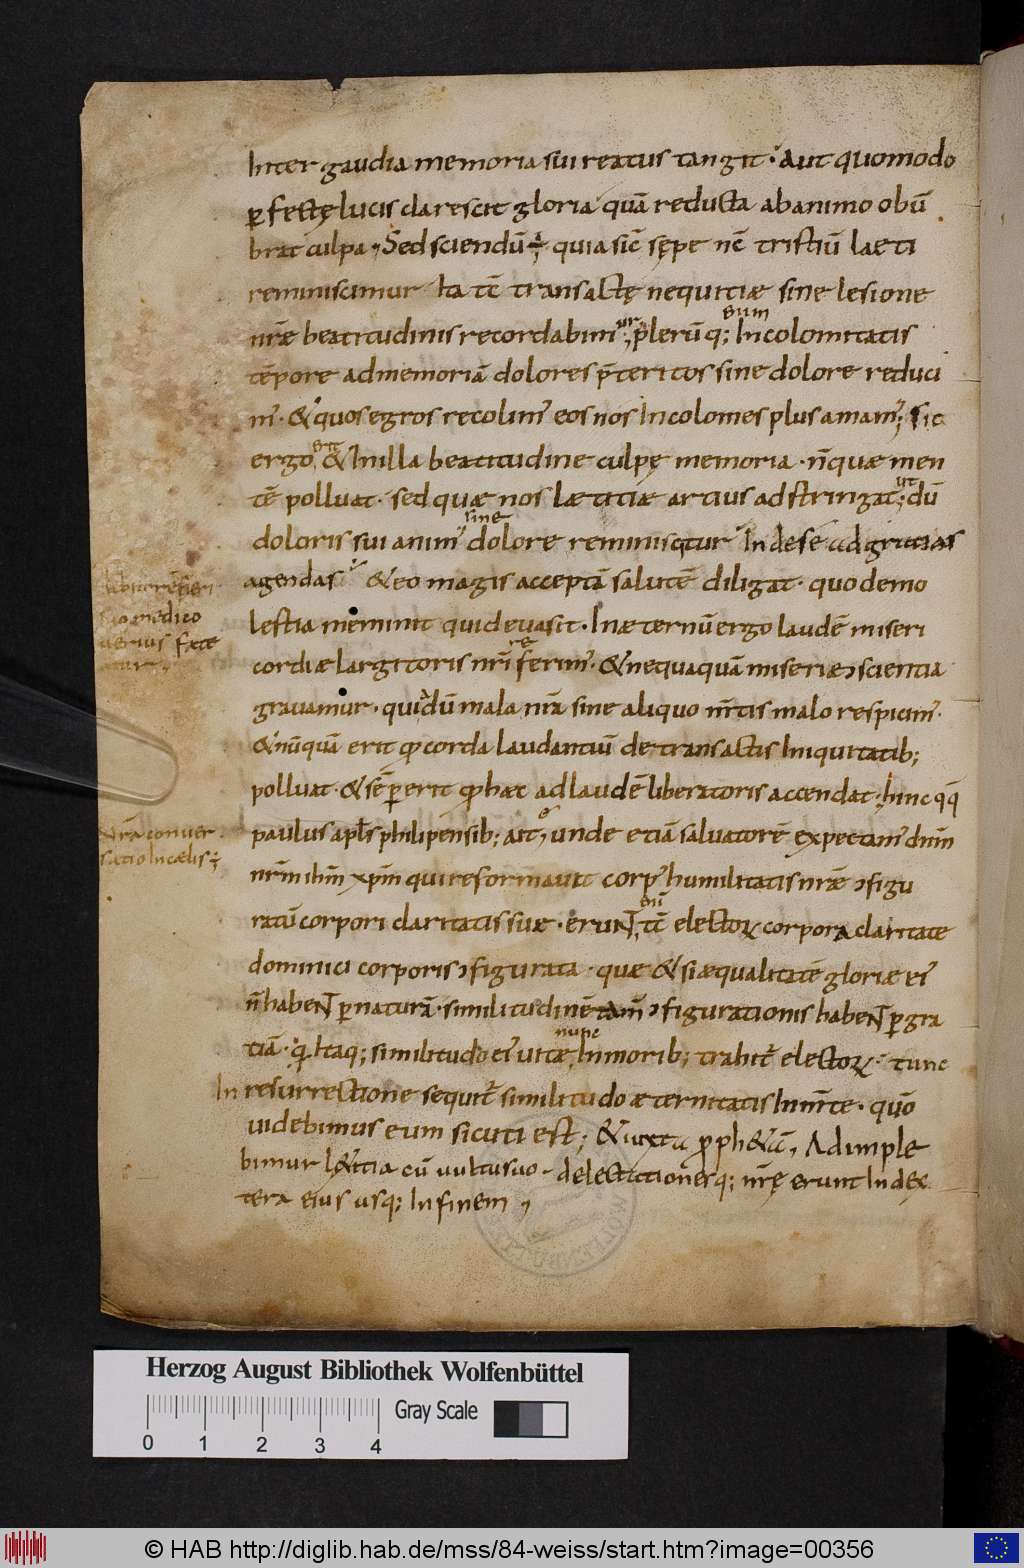 Inter gaudia memoria sui reatus tangit· Aut quomodo
ꝑfectę lucis clarescit gloria quā reducta abanimo obū
brat culpa· Sed sciendū ÷ quia sic̄ sępe nc̄ tristiū laeti
reminiscimur Ita tc̄ transactę nequitiae sine lesione
nr̄ae beatitudinis recordabimur; plerūq; enim Incolomitatis
tēpore admemoriā dolores p̄teritos sine dolore reduci
m᾽· & quos egros recolim᾽ eos nos Incolomes plus amam᾽; Sic
ergo erit & Inilla beatitudine culpę memoria· n̄quae men
tē polluat· sed quae nos laetitiae artius adstringat; ut dū
doloris sui anim᾽ sine dolore reminiscitur Inde se ad gratias
agendas & eo magis acceptā salutē diligat· quo demo
lestia meminit qui deuasit· In aeternū ergo laudē miseri
cordiae largitoris nr̄i referim᾽· & nequaquā miseriae ɔscientia
grauamur· qui dū mala nr̄a sine aliquo mentis malo respicim᾽·
& nūquā erit quo corda laudantiū de transactis Iniquitatib;
polluat· & sēꝑ erit quo haec ad laudē liberatoris accendat· hinc qq̄
paulus apls̄ philipensib; ait; unde etiā saluatorē expectam᾽ dnm̄
nr̄m ihm̄ xpm̄ qui reformauit corp᾽ humilitatis nr̄ae ɔfigu
ratū corpori claritatis suae· erunt enī tc̄ electoꝝ corpora claritate
dominici corporis ɔfigurata· quae & si aequalitatē gloriae ei᾽
n̄ habent ꝑ naturā· similitudinē tam̄ ɔfigurationis habent ꝑ gra
tiā· Itaq; similitudo ei᾽ uitae nunc In morib; trahit᾽ electoꝝ· tunc
In resurrectione sequit᾽ similitudo aeternitatis In mr̄te· quō
uidebimus eum sicuti est; & iuxta ꝓph&ā, Adimple
bimur l&itia cū uultu suo· delectationesq; nr̄ę erunt In dex
tera eius usq; In finem
medico
uerius fate
tur
Nr̄a conuer
satio In caelis ÷
Herzog August Bibliothek Wolfenbüttel
Gray Scale
0 1 2 3 4
© HAB http://diglib.hab.de/mss/84-weiss/start.htm?image=00356